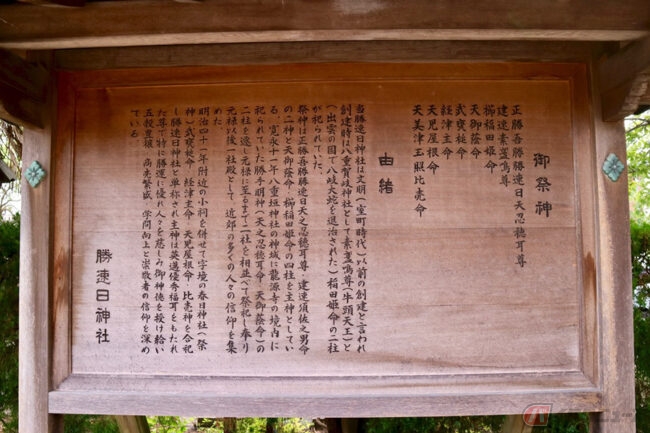 御祭神
正勝吾勝勝速日天忍穂耳尊
建速素盞嗚尊
櫛稲田姫命
天御蔭命
武甕槌命
経津主命
天児屋根命
天美津玉照比売命
由緒
当勝速日神社は文明(室町時代)以前の創建と言われ
創建時は八重賀岐神社として素盞嗚尊(牛頭天王)と
(出雲の国で八岐大蛇を退治された)稲田姫命の二柱
が祀られていた。
祭神は正勝吾勝勝速日天之忍穂耳尊・建速須佐之男命
の二神と天御蔭命・櫛稲田姫命の四柱を主神としてい
る。寛永十一年八重垣神社の神域に龍源寺の境内に
祀られていた勝手明神(天之忍穂耳命・天御蔭命)の
二柱を遷し元禄に至るまで二社を相並べて祭祀し奉り
元禄以後一社殿として、近郊の多くの人々の信仰を集
めた
明治四十一年附近の小祠を併せて字境の春日神社(祭
神)武甕槌命・経津主命・天児屋根命・比売神を合祀
し勝速日神社と単称され主神は英邁優秀福耳をもたれ
た尊で特に勝運に優れ人々を慈しみ御神徳を授け給い
五穀豊穣・商売繁盛・学問向上と崇敬者の信仰を深め
ている。
勝速日神社